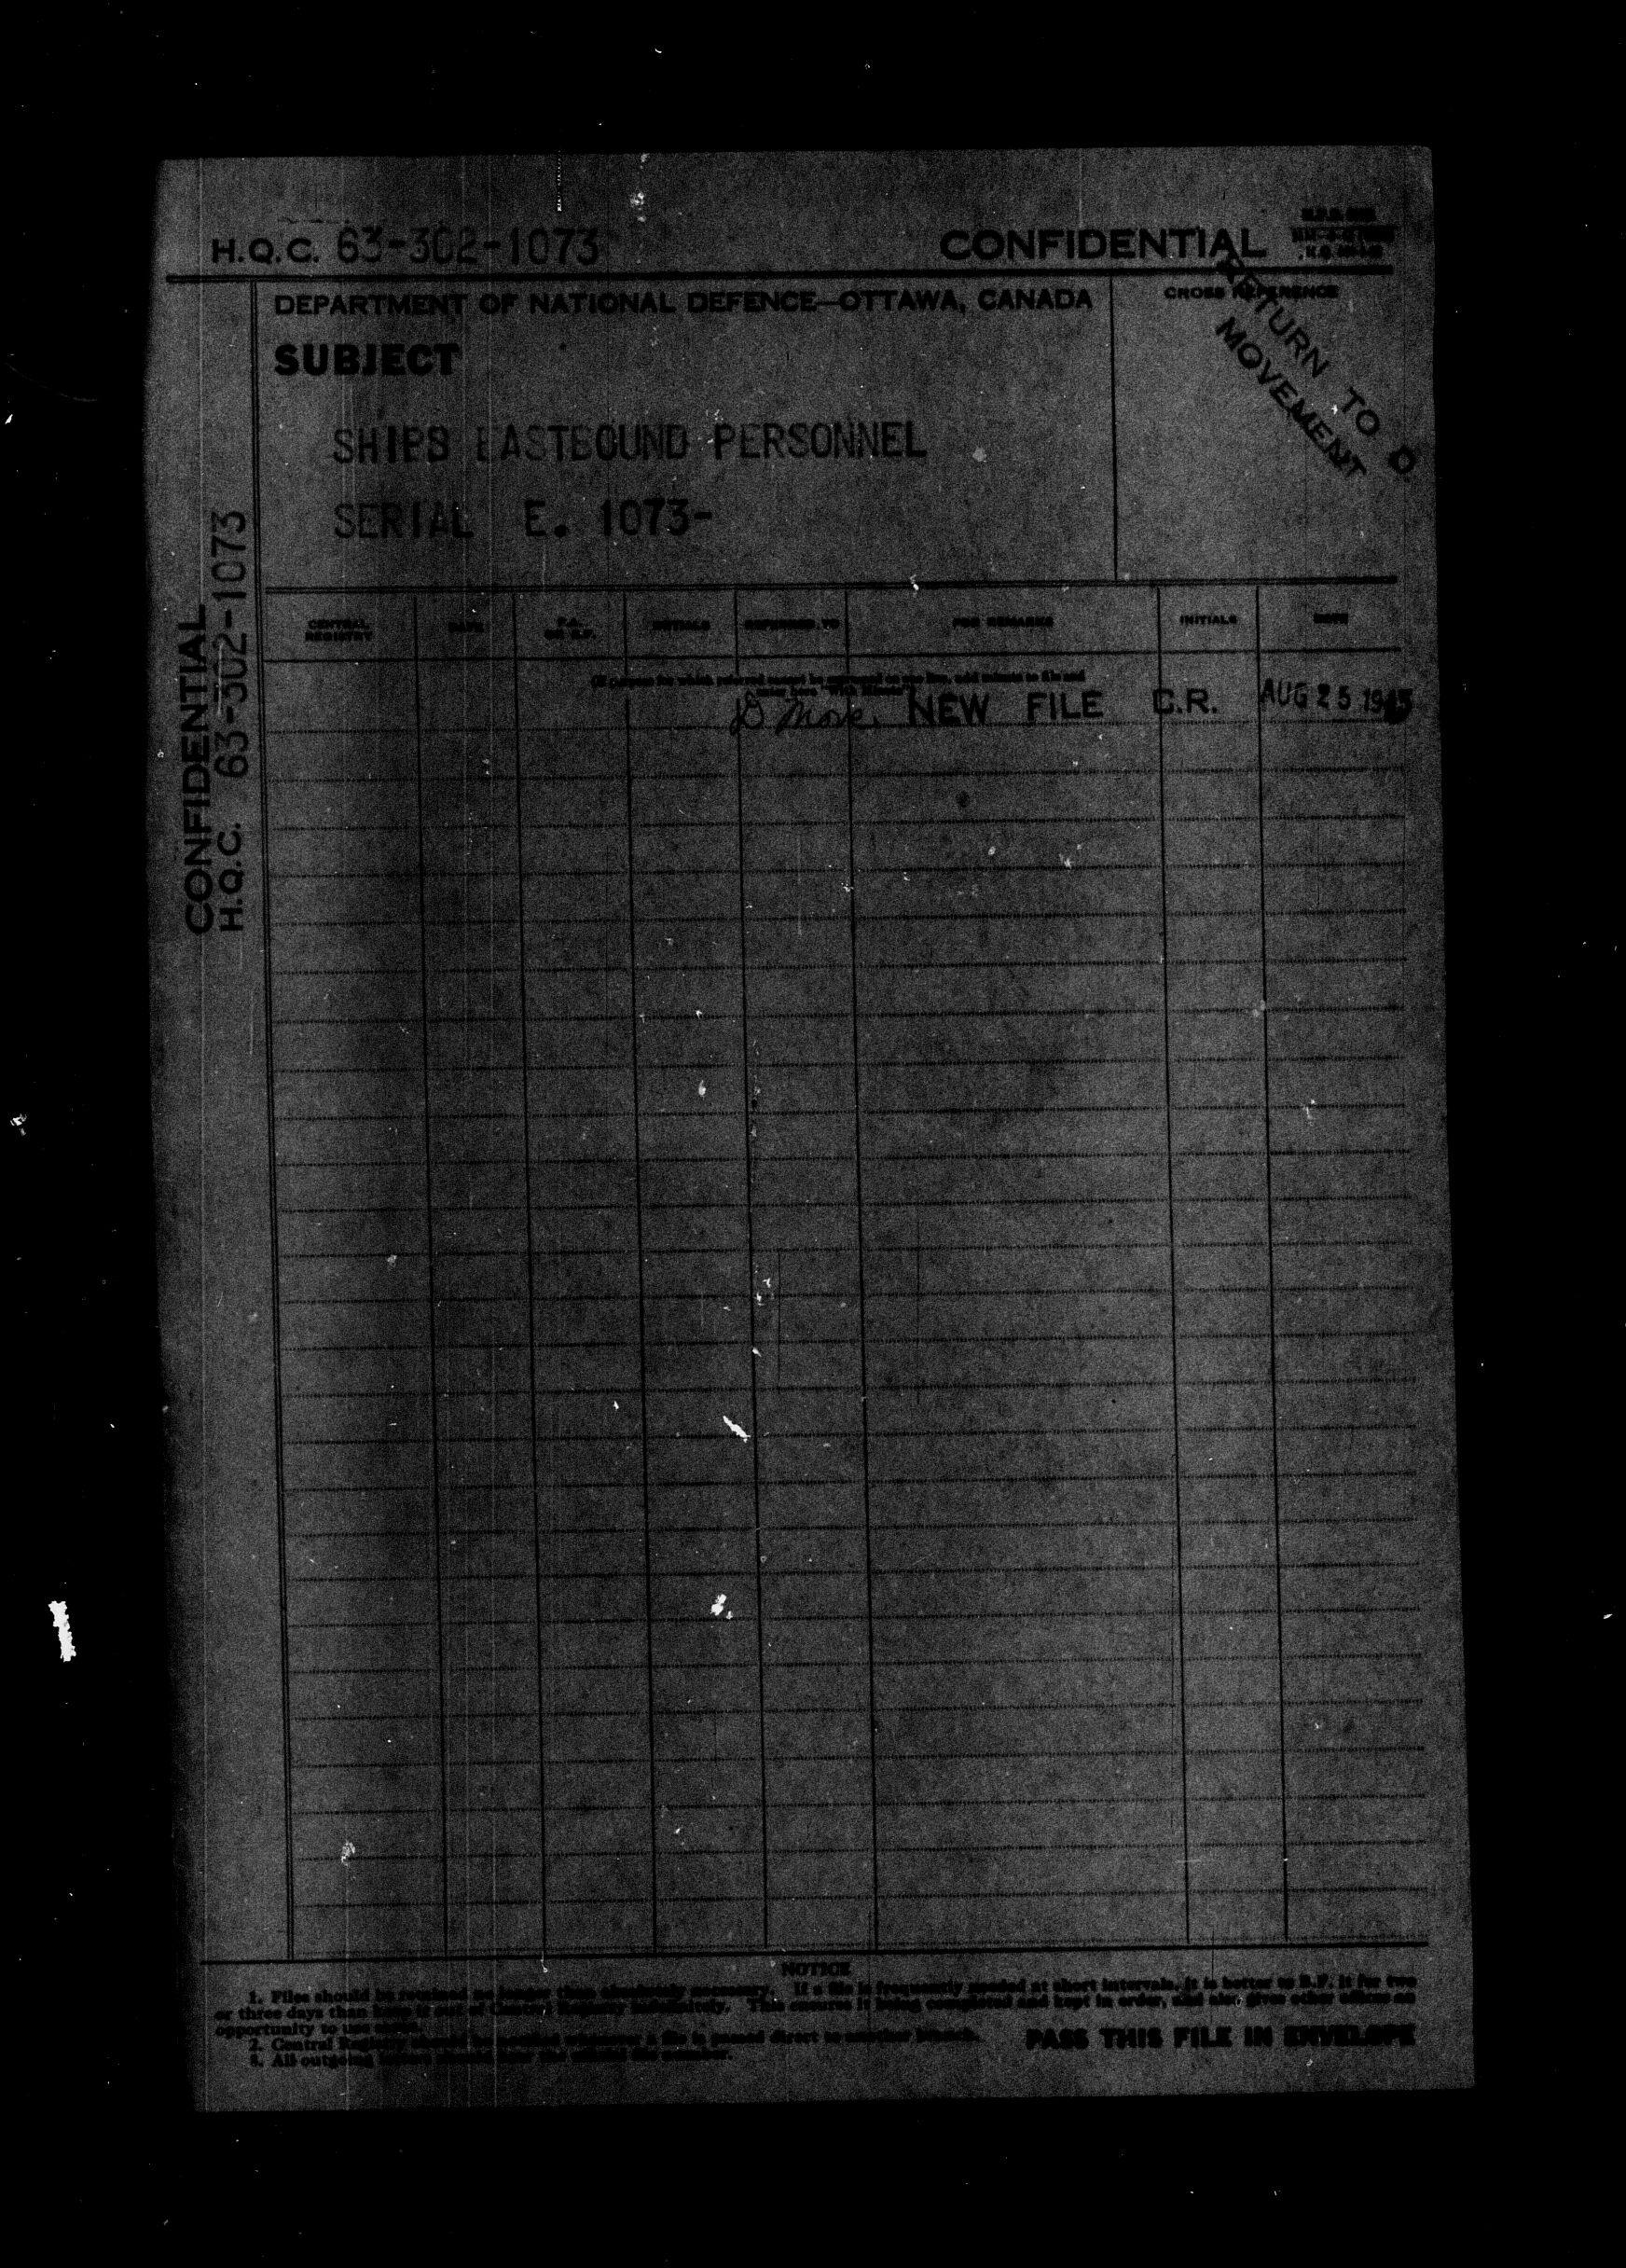 H.Q.C. 63-302-1073
CONFIDENTIAL
DEPARTMENT OF NATIONAL DEFENCE—OTTAWA, CANADA
CROSS REFERENCE
RETURN TO D.
MOVEMENT
SUBJECT
SHIPS EASTBOUND PERSONNEL
SERIAL E. 1073-
CONFIDENTIAL
H.Q.C. 63-302-1073
CENTRAL REGISTRY
DATE
P.A. OR B.F.
INITIALS
REFERRED TO
FOR REMARKS
INITIALS
DATE
D Move. NEW FILE C.R. AUG 25 1945
NOTICE
1. Files should be retained no longer than absolutely necessary. If a file is frequently needed at short intervals, it is better to B.F. it for two
or three days than keep it out of Central Registry indefinitely. This ensures it being completed and kept in order, and also gives other offices an
opportunity to use
2. Central Registry should be notified whenever a file is passed direct to another branch.
3. All outgoing
PASS THIS FILE IN ENVELOPE